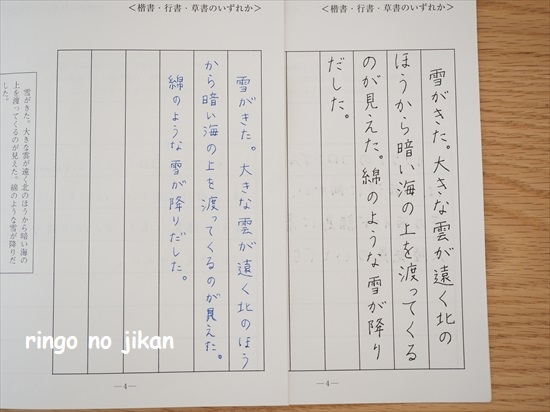 <楷書・行書・草書のいずれか>
雪がきた。大きな雲が遠く北の
ほうから暗い海の上を渡ってくる
のが見えた。綿のような雪が降り
だした。
—4—
<楷書・行書・草書のいずれか>
雪がきた。大きな雲が遠く北のほう
から暗い海の上を渡ってくるのが見えた。
綿のような雪が降りだした。
雪がきた。大きな雲が遠く北のほうから暗い海の
上を渡ってくるのが見えた。綿のような雪が降りだ
した。
—4—
ringo no jikan